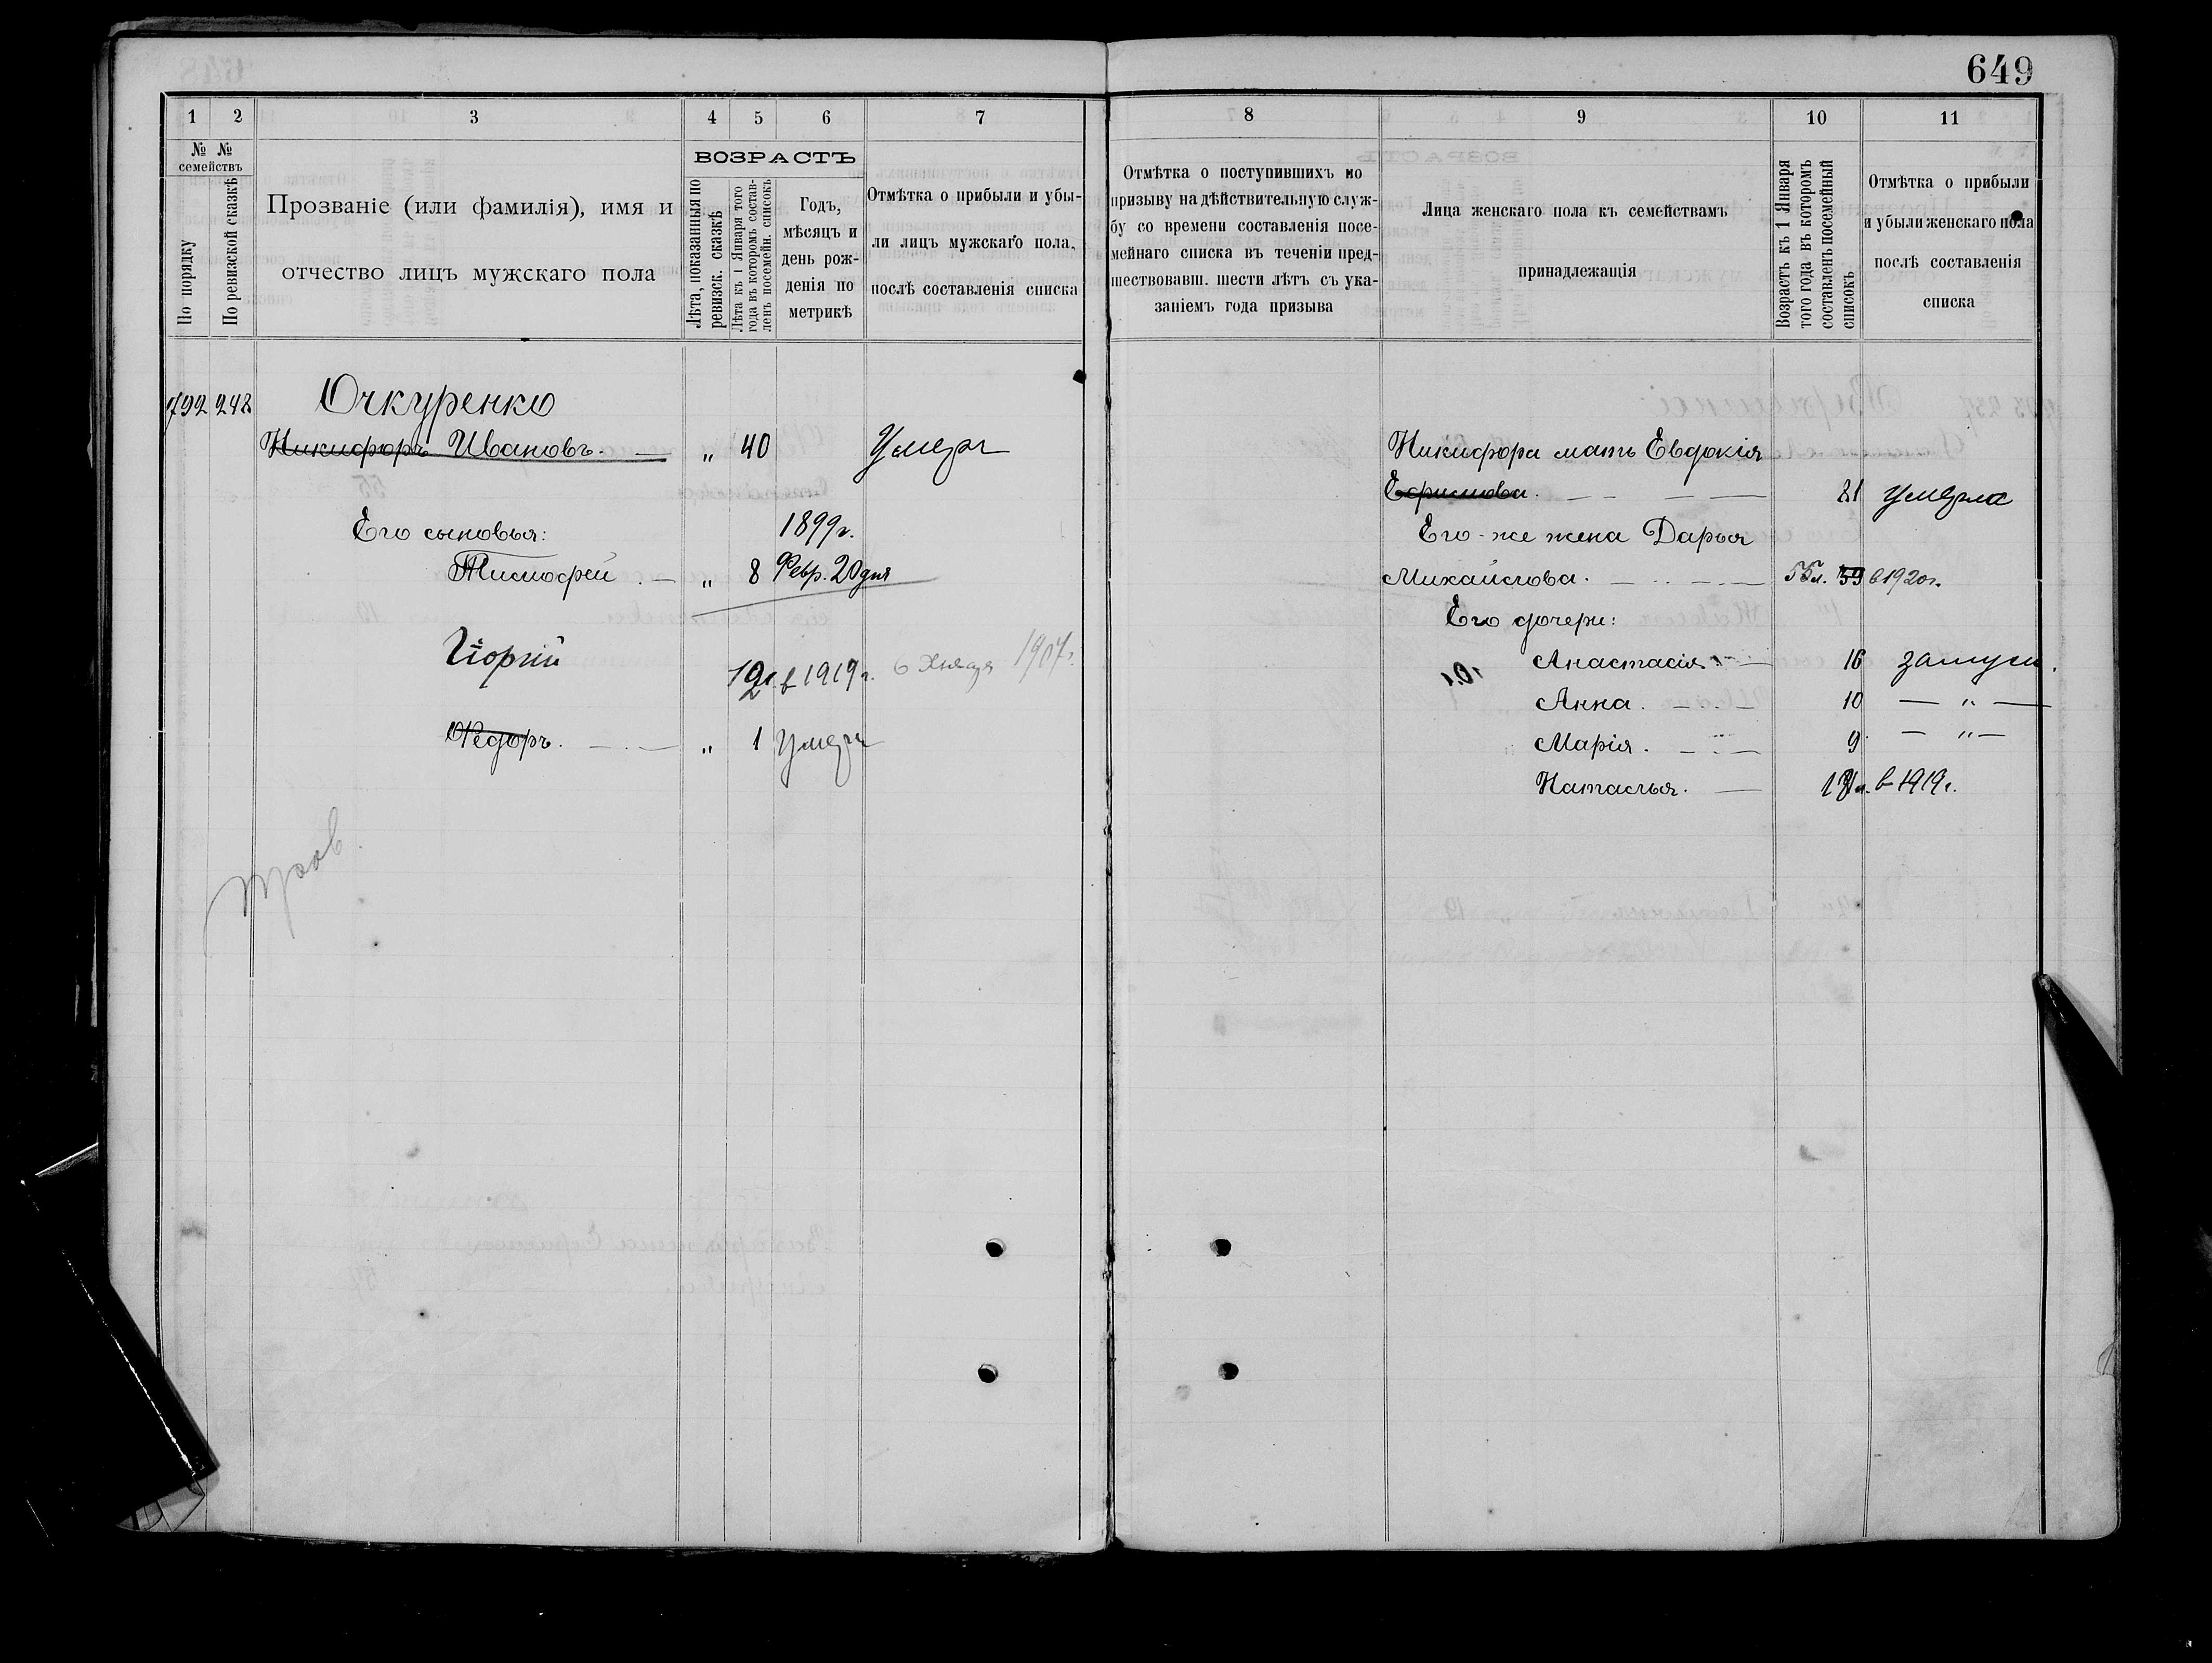 649
1 2 3 4 5 6 7
№ №
семействъ
По порядку
По ревизской сказкѣ
Прозваніе (или фамилія), имя и
отчество лицъ мужскаго пола
ВОЗРАСТЪ
Лѣта, показанныя по
ревизск. сказкѣ
Лѣта къ 1 Января того
года въ которомъ состав-
ленъ посемейн. списокъ
Годъ,
мѣсяцъ и
день рож-
денія по
метрикѣ
Отмѣтка о прибыли и убы-
ли лицъ мужскаго пола,
послѣ составленія списка
792 248 Очкуренко
Никифоръ Ивановъ. — „ 40 Умеръ
Его сыновья: 1899г.
Тимофей . — „ 8 Февр. 20 дня
Гіоргій 12л. в 1919г. 6 Января 1907г.
Федоръ. — . — „ 1 Умеръ
8 9 10 11
Отмѣтка о поступившихъ по
призыву на дѣйствительную служ-
бу со времени составленія посе-
мейнаго списка въ теченіи пред-
шествовавш. шести лѣтъ съ ука-
заніемъ года призыва
Лица женскаго пола къ семействамъ
принадлежащія
Возрастъ къ 1 Января
того года въ которомъ
составленъ посемейный
списокъ
Отмѣтка о прибыли
и убыли женскаго пола
послѣ составленія
списка
Никифора мать Евдокія
Ефимова. — — — — 81 умерла
Его-же жена Дарья
Михайлова. — . . — . — 55л. 39 в 1920г.
Его дочери:
Анастасія . — 16 замуж.
Анна. — . . — 10 — „ —
Марія. — . . — 9 — „ —
Наталья. — 13л. в 1919г.